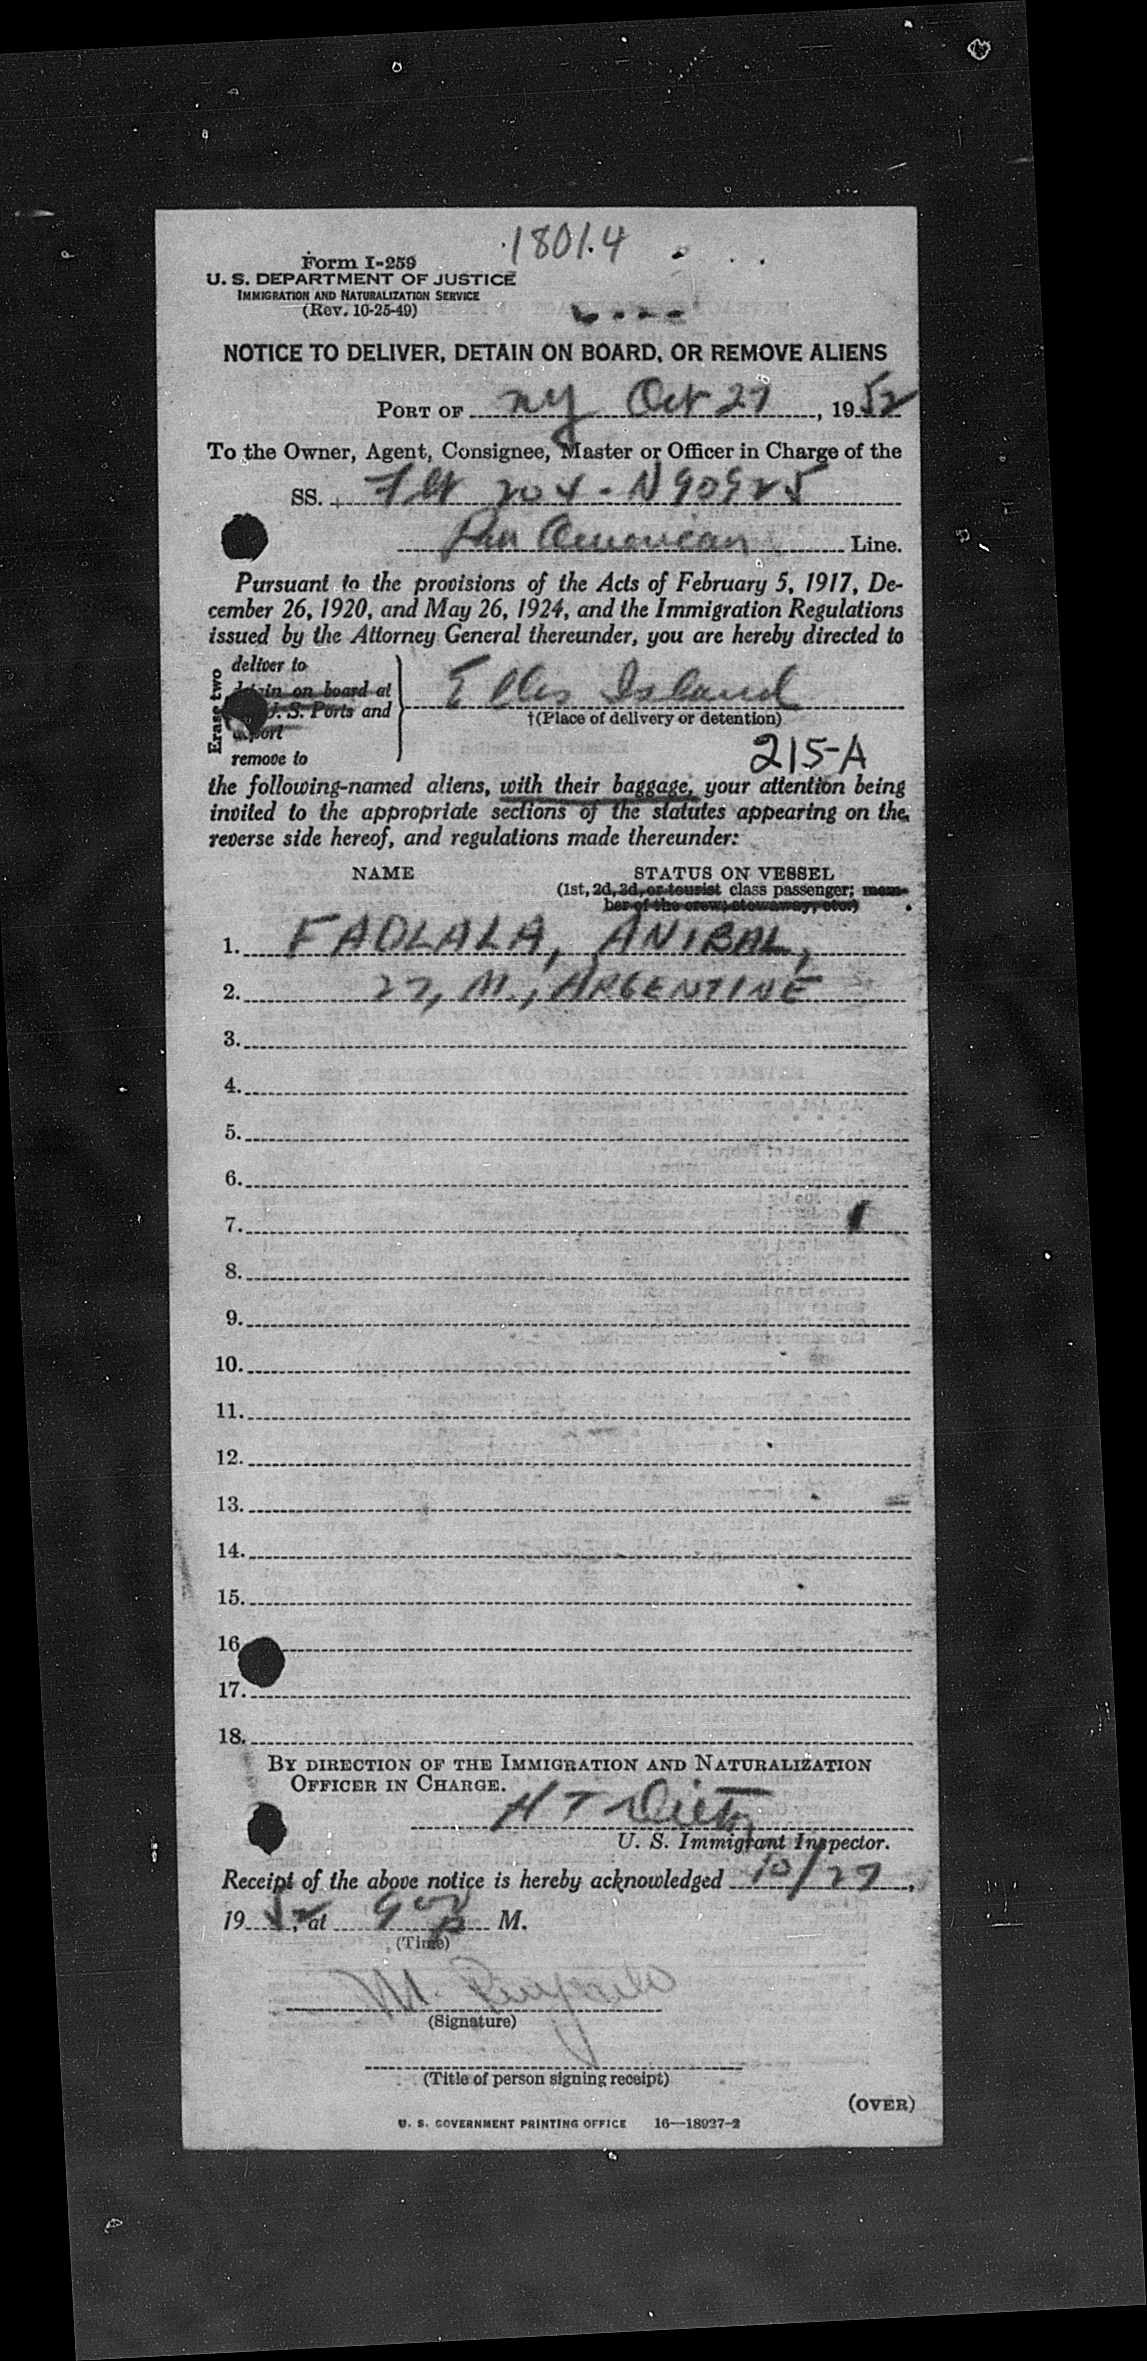 1801.4
Form I-259
U. S. DEPARTMENT OF JUSTICE
IMMIGRATION AND NATURALIZATION SERVICE
(Rev. 10-25-49)
NOTICE TO DELIVER, DETAIN ON BOARD, OR REMOVE ALIENS
PORT OF NY Oct 27, 1952
To the Owner, Agent, Consignee, Master or Officer in Charge of the
SS. Flt 204 - N90925
Pan American Line.
Pursuant to the provisions of the Acts of February 5, 1917, De-
cember 26, 1920, and May 26, 1924, and the Immigration Regulations
issued by the Attorney General thereunder, you are hereby directed to
Erase two
deliver to
detain on board at
U. S. Ports and
deport
remove to
Ellis Island
†(Place of delivery or detention)
215-A
the following-named aliens, with their baggage, your attention being
invited to the appropriate sections of the statutes appearing on the
reverse side hereof, and regulations made thereunder:
NAME STATUS ON VESSEL
(1st, 2d, 3d, or tourist class passenger; mem-
ber of the crew; stowaway, etc.)
1. FADLALA, ANIBAL,
2. 27, M., ARGENTINE
3.
4.
5.
6.
7.
8.
9.
10.
11.
12.
13.
14.
15.
16
17.
18.
BY DIRECTION OF THE IMMIGRATION AND NATURALIZATION
OFFICER IN CHARGE.
H T Dietz
U. S. Immigrant Inspector.
Receipt of the above notice is hereby acknowledged 10/27,
1952, at 9 P M.
(Time)
M.
(Signature)
(Title of person signing receipt)
(OVER)
U. S. GOVERNMENT PRINTING OFFICE 16—18927-2